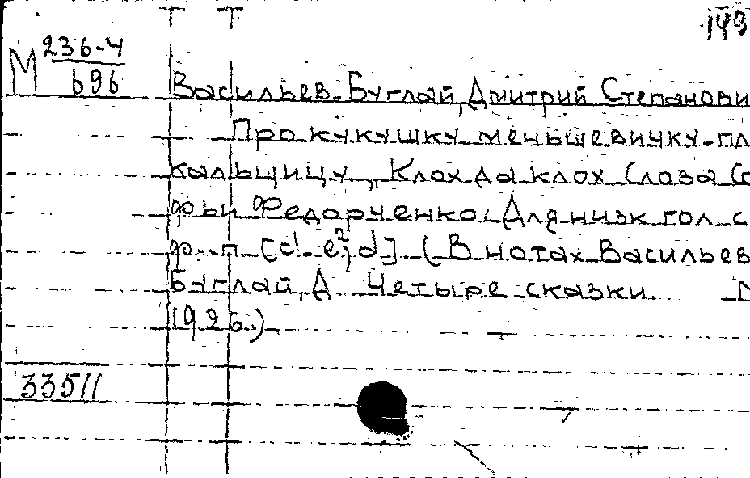 149
М 236-4
696
Васильев-Буглай, Дмитрий Степанови
Про кукушку меньшевичку-пл
кальщицу, Клох да клох Слова Со
фьи Федорченко. Для низк. гол. с
ф-п. [d'-e²; d] (В нотах Васильев
Буглай, Д Четыре сказки
1926.)
33511